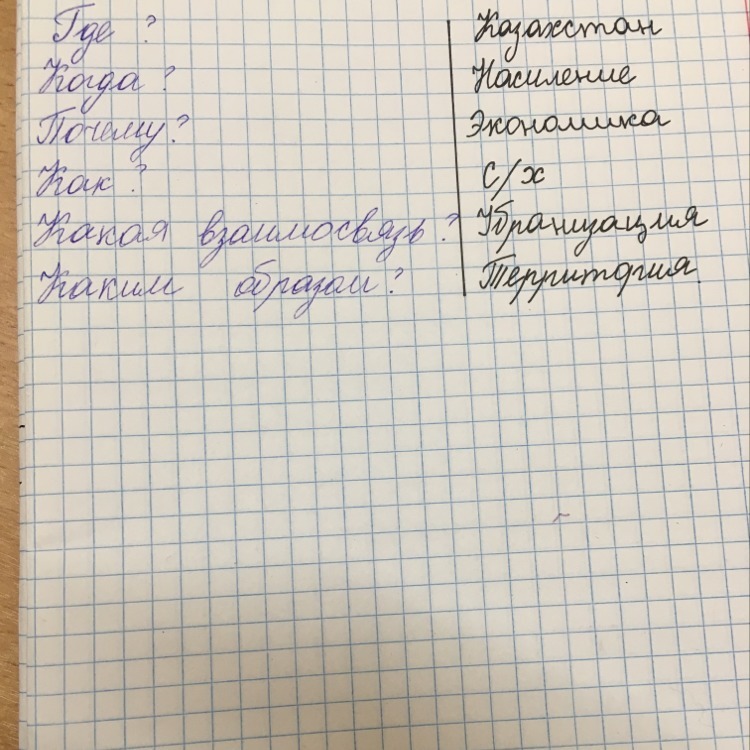 Где ?
Когда ?
Почему ?
Как ?
Какая взаимосвязь ?
Каким образом ?
Казахстан
Насиление
Экономика
С/х
Убранизация
Территория